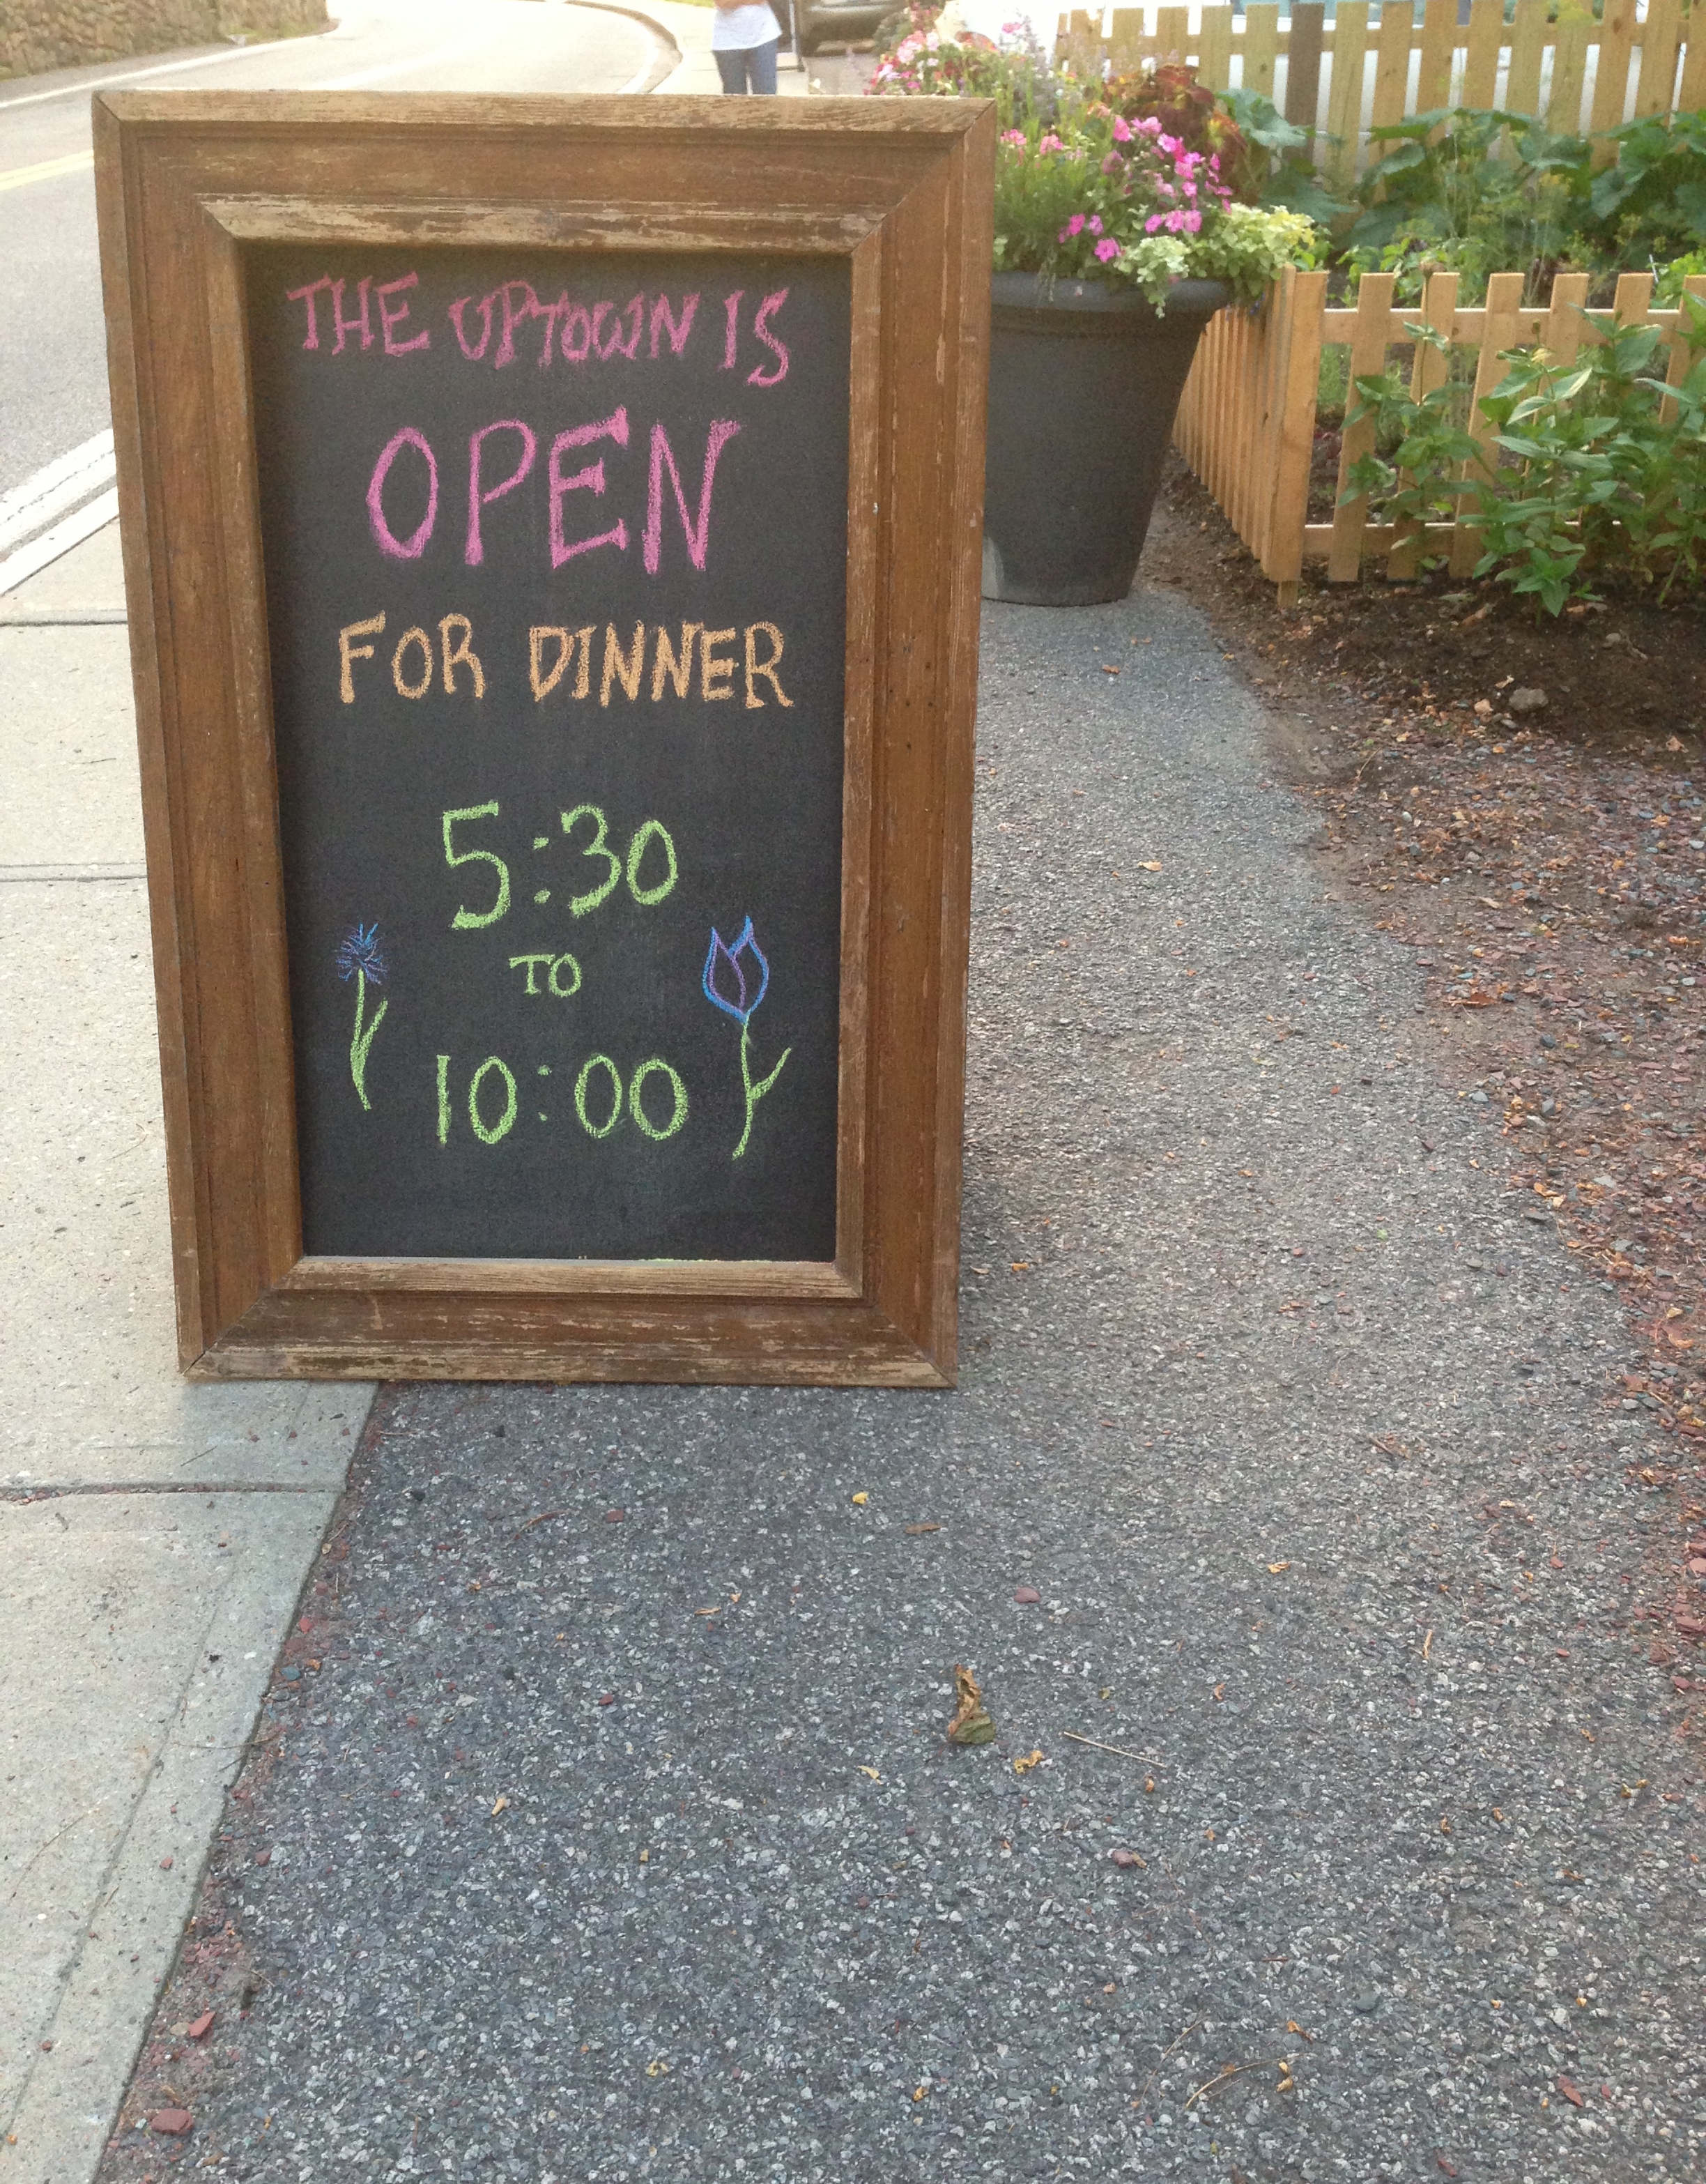 THE UPTOWN IS
OPEN
FOR DINNER
5:30
TO
10:00